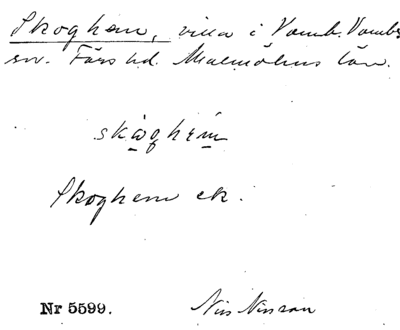 Skoghem, villa i Vomb. Vombs
sn. Färs hd. Malmöhus län.
skåghem
Skoghem ek.
Nr 5599.
Nils Nilsson